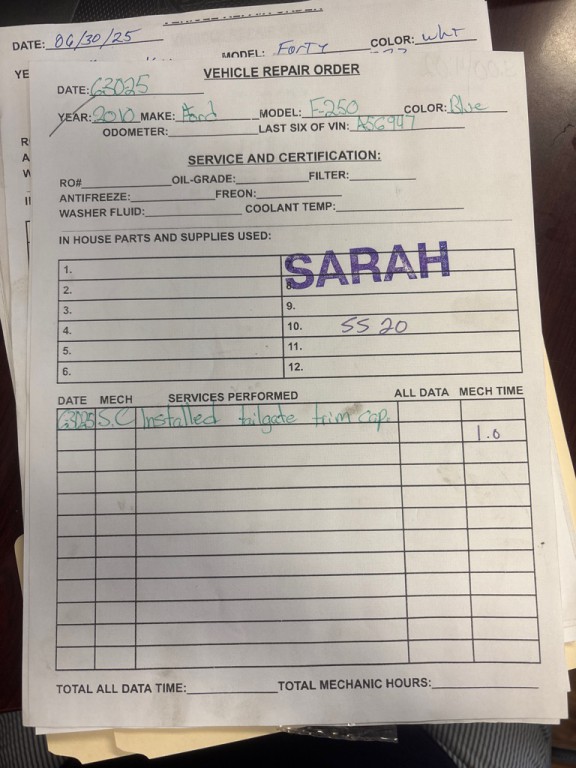 DATE: 06/30/25
MODEL: Forty
COLOR: wht
VEHICLE REPAIR ORDER
DATE: 63025
YEAR: 2010 MAKE: Ford MODEL: F-250 COLOR: Blue
ODOMETER: LAST SIX OF VIN: A56947
SERVICE AND CERTIFICATION:
RO# OIL-GRADE: FILTER:
ANTIFREEZE: FREON:
WASHER FLUID: COOLANT TEMP:
IN HOUSE PARTS AND SUPPLIES USED:
SARAH
1.
2. 8.
3. 9.
4. 10. SS 20
5. 11.
6. 12.
DATE MECH SERVICES PERFORMED ALL DATA MECH TIME
63025 S.C Installed tailgate trim cap.
1.0
TOTAL ALL DATA TIME: TOTAL MECHANIC HOURS: